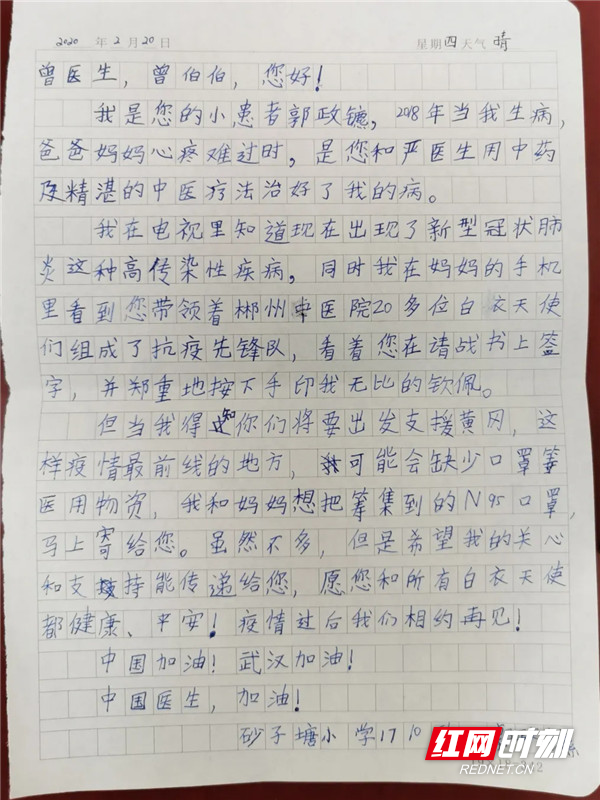 2020 年 2 月 20 日 星期 四 天气 晴
曾医生，曾伯伯，您好！
我是您的小患者郭政镱，2018年当我生病，
爸爸妈妈心疼难过时，是您和严医生用中药
及精湛的中医疗法治好了我的病。
我在电视里知道现在出现了新型冠状肺
炎这种高传染性疾病，同时我在妈妈的手机
里看到您带领着郴州中医院20多位白衣天使
们组成了抗疫先锋队，看着您在请战书上签
字，并郑重地按下手印我无比的钦佩。
但当我得知你们将要出发支援黄冈，这
样疫情最前线的地方，可能会缺少口罩等
医用物资，我和妈妈想把筹集到的N95口罩，
马上寄给您。虽然不多，但是希望我的关心
和支持能传递给您，愿您和所有白衣天使
都健康、平安！疫情过后我们相约再见！
中国加油！武汉加油！
中国医生，加油！
砂子塘小学1710
红网时刻
REDNET.CN